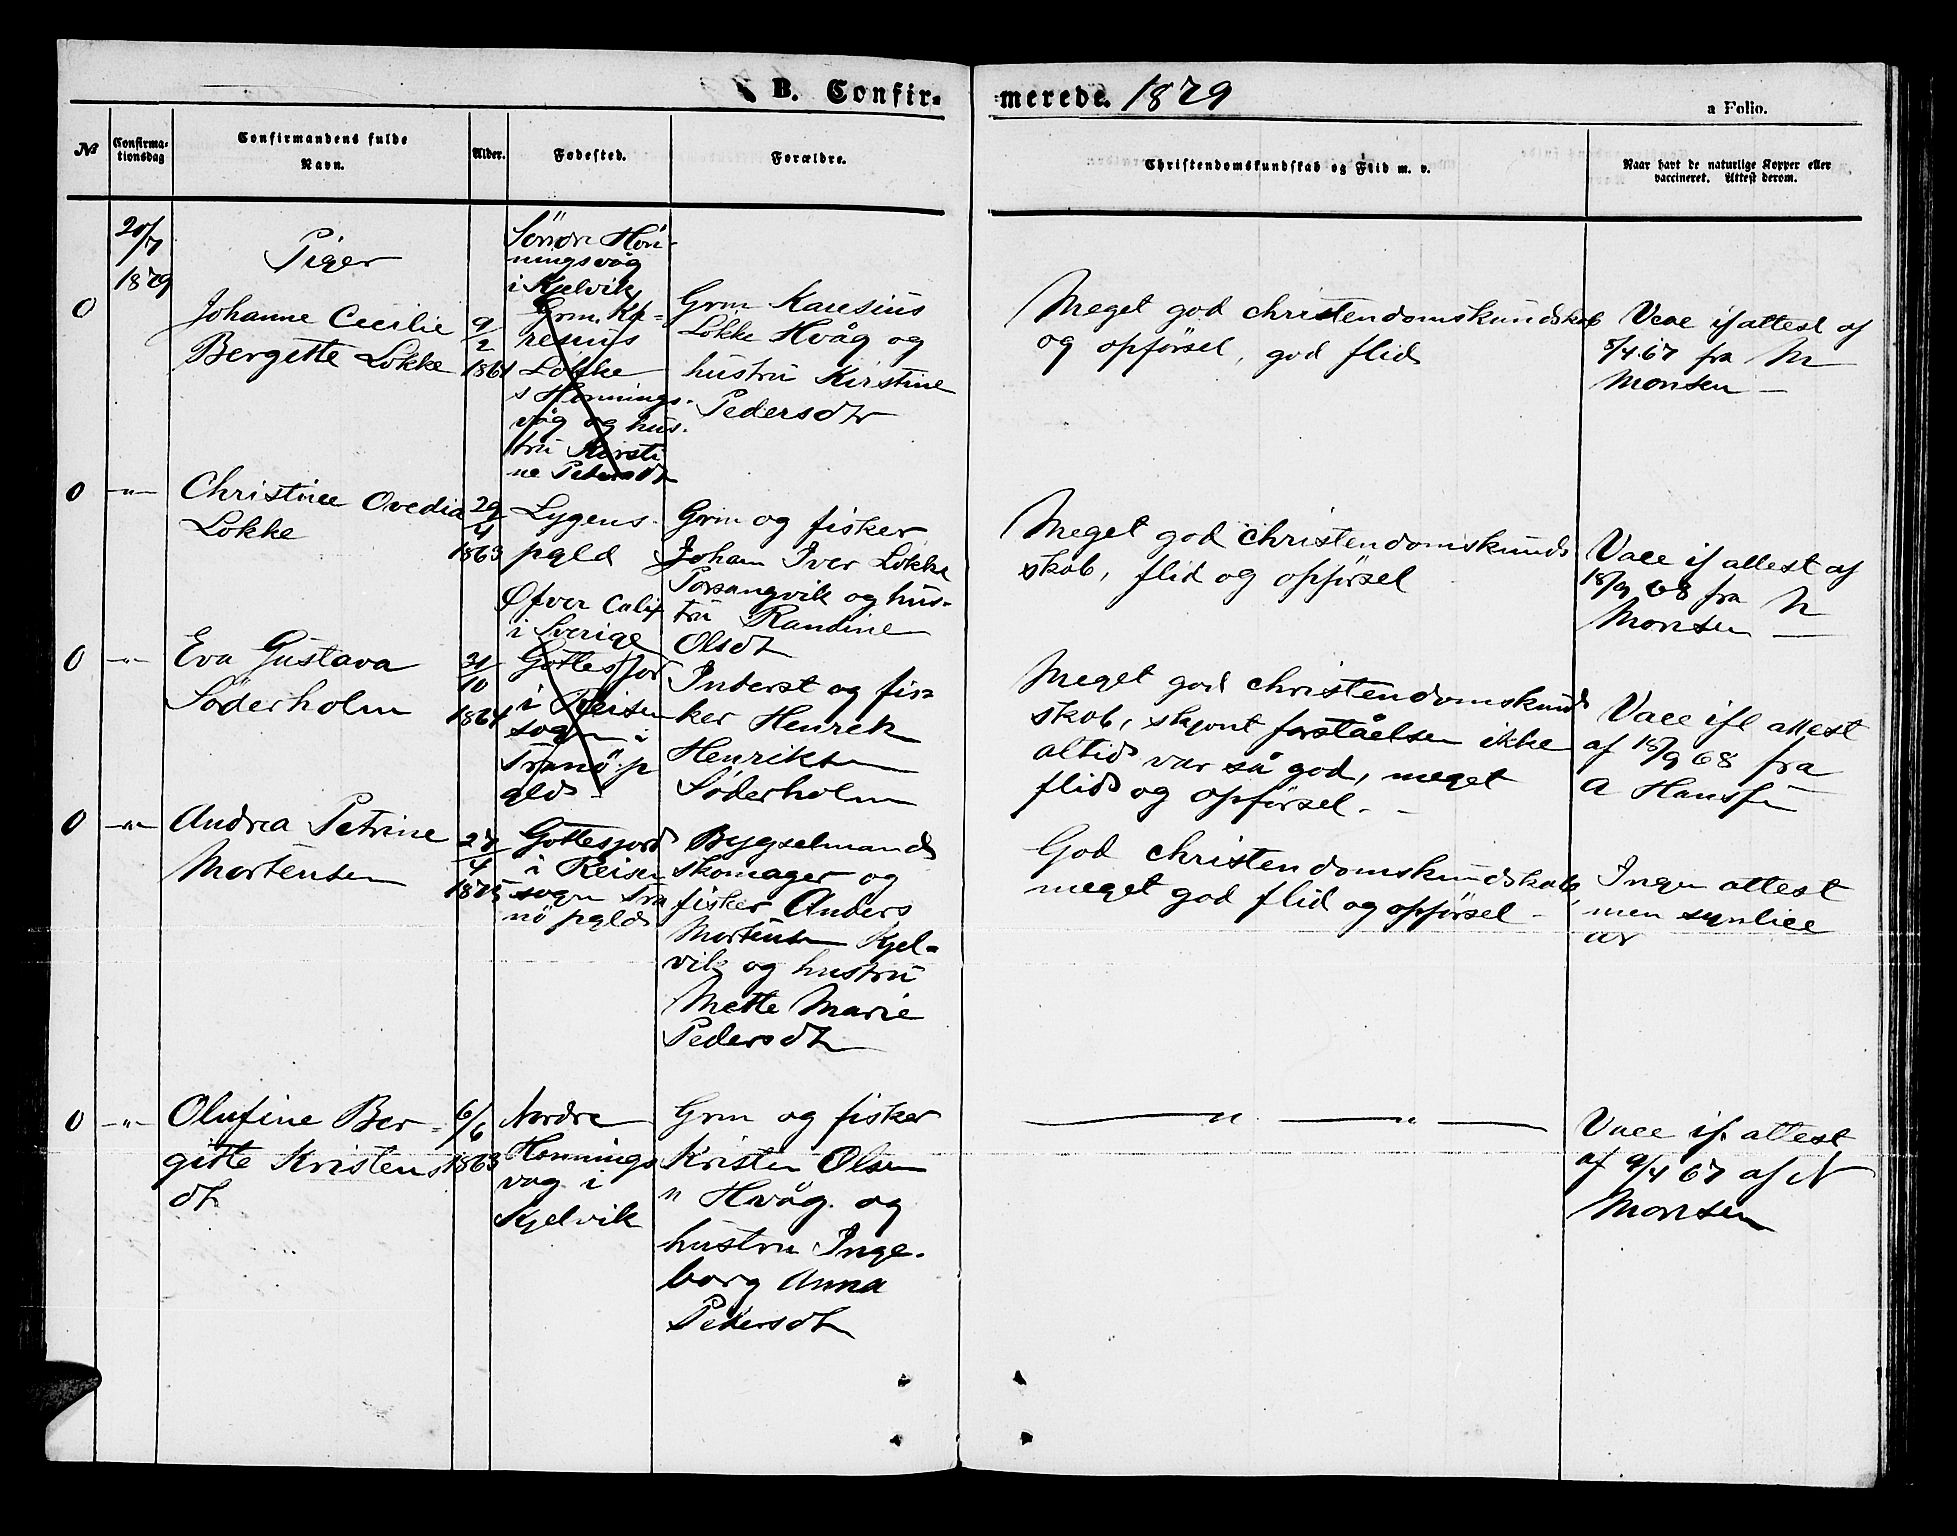 B. Confir-
merede. 1879
a Folio.
№
Confirma-
tionsdag
Confirmandens fulde
Navn.
Alder.
Fødested.
Forældre.
Christendomskundskab og Flid m. v.
Naar havt de naturlige Kopper eller
vaccineret. Attest derom.
20/7
1879
Piger
0
Johanne Cecilie
Bergitte Lokke
9/2
1864
Söndre Hön-
ningsvåg
i Kjelvik
Grm. Ka-
resius
Lökke
s Honnings-
våg og hus-
tru Kirsti
ne Pedersdt
Grm Karesius
Lökke Hvåg og
hustru Kirstine
Pedersdtr
Meget god christendomskundskab
og opförsel, god flid
Vacc if attest af
8/4 67 fra M
Monsen
0
-"-
Christine Ovedia
Lokke
29/4
1863
Lygens-
pgld
Grm og fisker
Johan Iver Lokke
Porsangvik og hus-
tru Randine
Olsdt
Meget god christendomskunds
skab, flid og opförsel
Vacc if attest af
18/9 68 fra M
Monsen
0
-"-
Eva Gustava
Söderholm
31/10
1864
Øfver Calix
i Sverige
Gottesfjor
i Reisen
sogn i
Tranö p
gld
Inderst og fis-
ker Henrik
Henriksen
Söderholm
Meget god christendomskund
skab, skjont forståelsen ikke
altid var så god, meget
flid og opförsel. -
Vacc ifl attest
af 18/9 68 fra
A Hanssen
0
-"-
Andrea Petrine
Mortensen
27/4
Gottesjord
i Reisen
sogn Tra
nö pgld
Bygselmand
skomager og
fisker Anders
Mortensen Kjel-
vik og hustru
Mette Marie
Pedersdt
God christendomskundskab,
meget god flid og opförsel -
Ingen attest
men synlige
ar
0
-"-
Olufine Ber-
gitte Kristens
dt
6/6
1863
Nordre
Honnings
vag i
Kjelvik
Grm og fisker
Kristen Olsen
" Hvåg. og
hustru Inge-
borg Anna
Pedersdt
— " — " —
Vacc if. attest
af 9/4 67 af N
Monsen